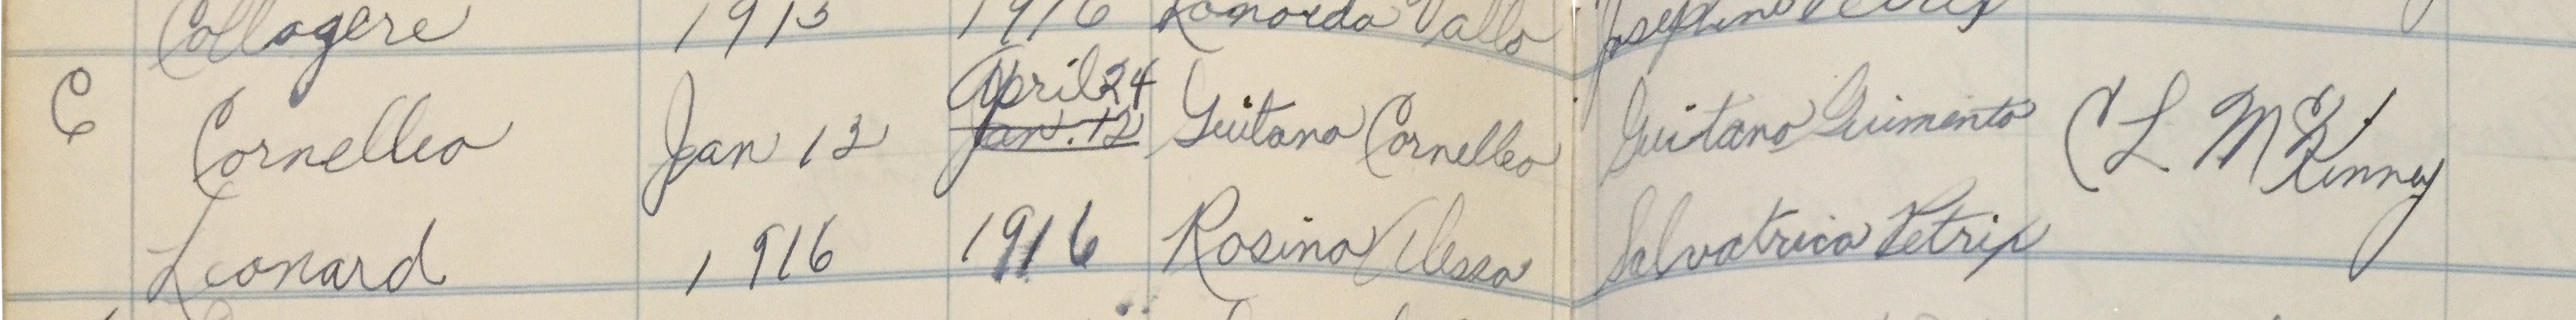 Collogere 1915 1916 Romorda Vallo Josephine
C Cornelleo Jan 12 April 24 Jan. 12 Guitano Cornelleo Guitano Guimento C L McKinney
Leonard 1916 1916 Rosino Alessa Salvatrica Petrix